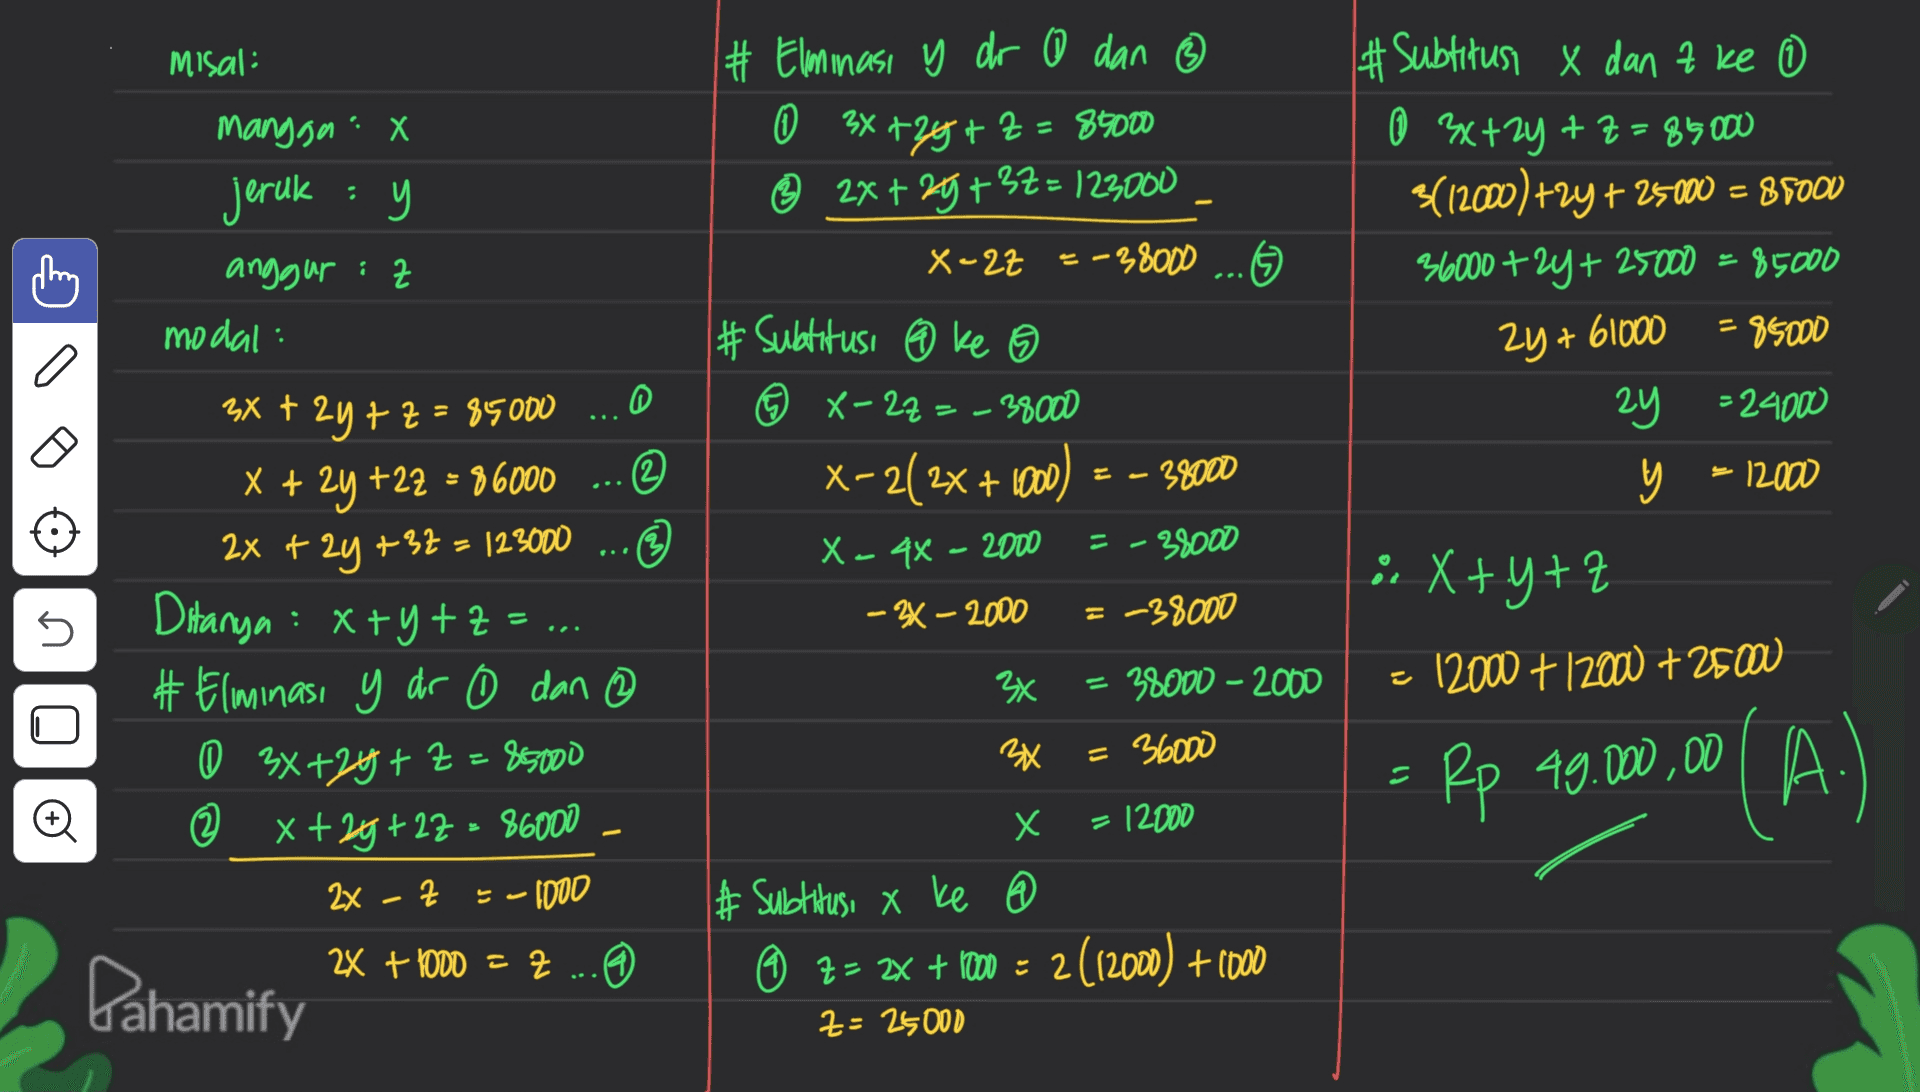 misal:
mangga : x
jeruk : y
anggur : z
modal :
3x + 2y + z = 85000 ... ①
x + 2y + 2z = 86000 ... ②
2x + 2y + 3z = 123000 ... ③
Ditanya : x + y + z = ...
# Eliminasi y dr ① dan ②
① 3x + 2y + z = 85000
② x + 2y + 2z = 86000 -
2x - z = -1000
2x + 1000 = z ... ④
Pahamify
# Elminasi y dr ① dan ③
① 3x + 2y + z = 85000
③ 2x + 2y + 3z = 123000 -
x - 2z = -38000 ... ⑤
# Subtitusi ④ ke ⑤
⑤ x - 2z = -38000
x - 2(2x + 1000) = -38000
x - 4x - 2000 = -38000
-3x - 2000 = -38000
3x = 38000 - 2000
3x = 36000
x = 12000
# Subtitusi x ke ④
④ z = 2x + 1000 = 2(12000) + 1000
z = 25000
# Subtitusi x dan z ke ①
① 3x + 2y + z = 85000
3(12000) + 2y + 25000 = 85000
36000 + 2y + 25000 = 85000
2y + 61000 = 85000
2y = 24000
y = 12000
∴ x + y + z
= 12000 + 12000 + 25000
= Rp 49.000,00 (A.)